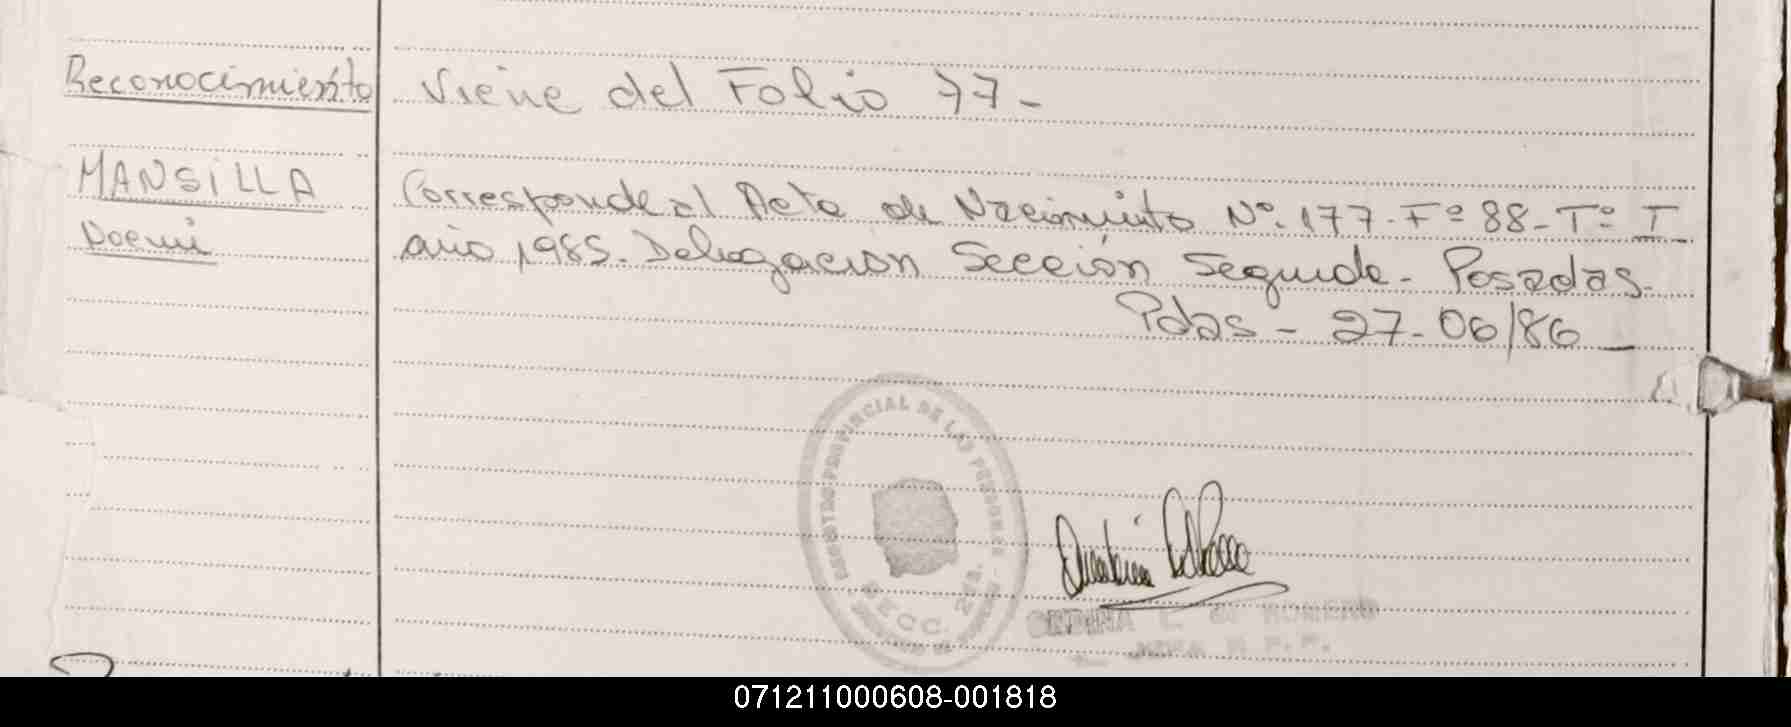 Reconocimiento Viene del Folio 77-
MANSILLA
Noemi
Corresponde al Acta de Nacimiento Nº. 177. Fº 88 - Tº I
año 1985. Delegación Sección Segunda - Posadas.
Pdas - 27-06/86
REGISTRO PROVINCIAL DE LAS PERSONAS
SECC. 2da.
ONDINA E. de ROMERO
071211000608-001818